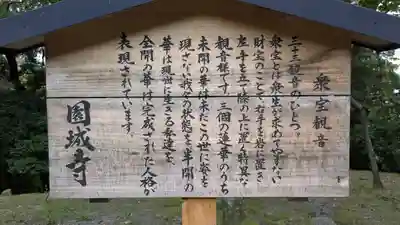 衆宝観音
三十三観音のひとつ。
衆宝とは衆生が求めてやまない
財宝のことで右手を岩に置き
左手を立て膝の上に置く特異な
観音様です。三個の蓮華のうち
未開の華は未だこの世に姿を
現さない我々の状態を、半開の
華は現世に生きる発達を、
全開の華は完成された人格が
表現されています。
園城寺